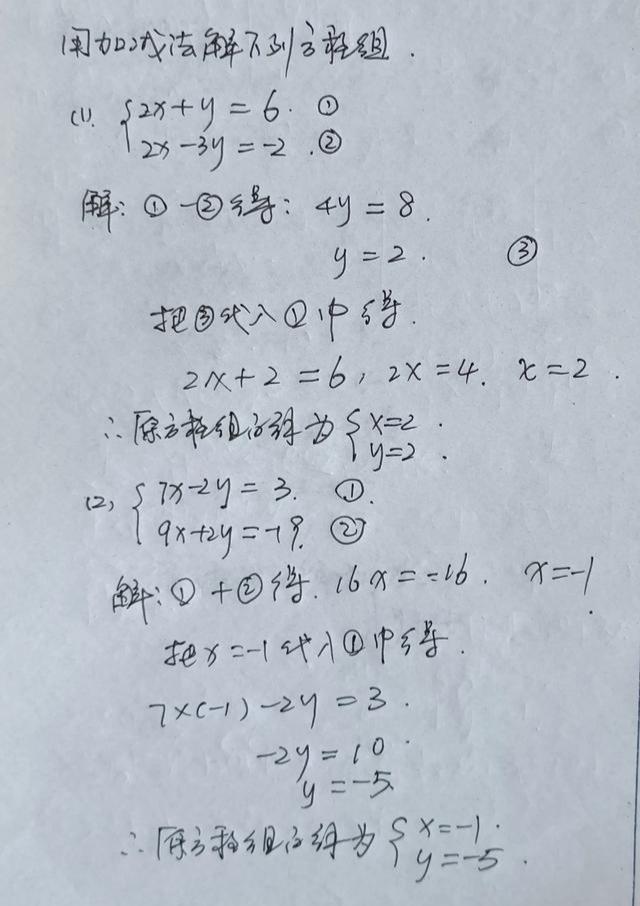 用加减法解下列方程组.
(1). {2x+y=6. ①
2x-3y=-2. ②
解: ①-②得: 4y=8.
y=2. ③
把③代入①中得.
2x+2=6, 2x=4. x=2.
∴原方程组的解为 {x=2.
y=2.
(2) {7x-2y=3. ①.
9x+2y=-19. ②
解: ①+②得. 16x=-16. x=-1.
把x=-1代入①中得.
7×(-1)-2y=3.
-2y=10.
y=-5
∴原方程组的解为 {x=-1.
y=-5.